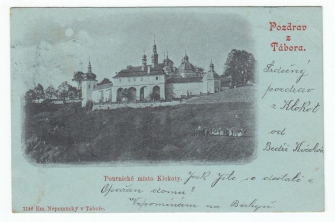 Pozdrav
z
Tábora.
Srdečný
pozdrav
z Klokot
od
Poutnické místo Klokoty.
Jak jste se dostali
domu?
Vzpomínám na
3146 Em. Nepomucký v Táboře.